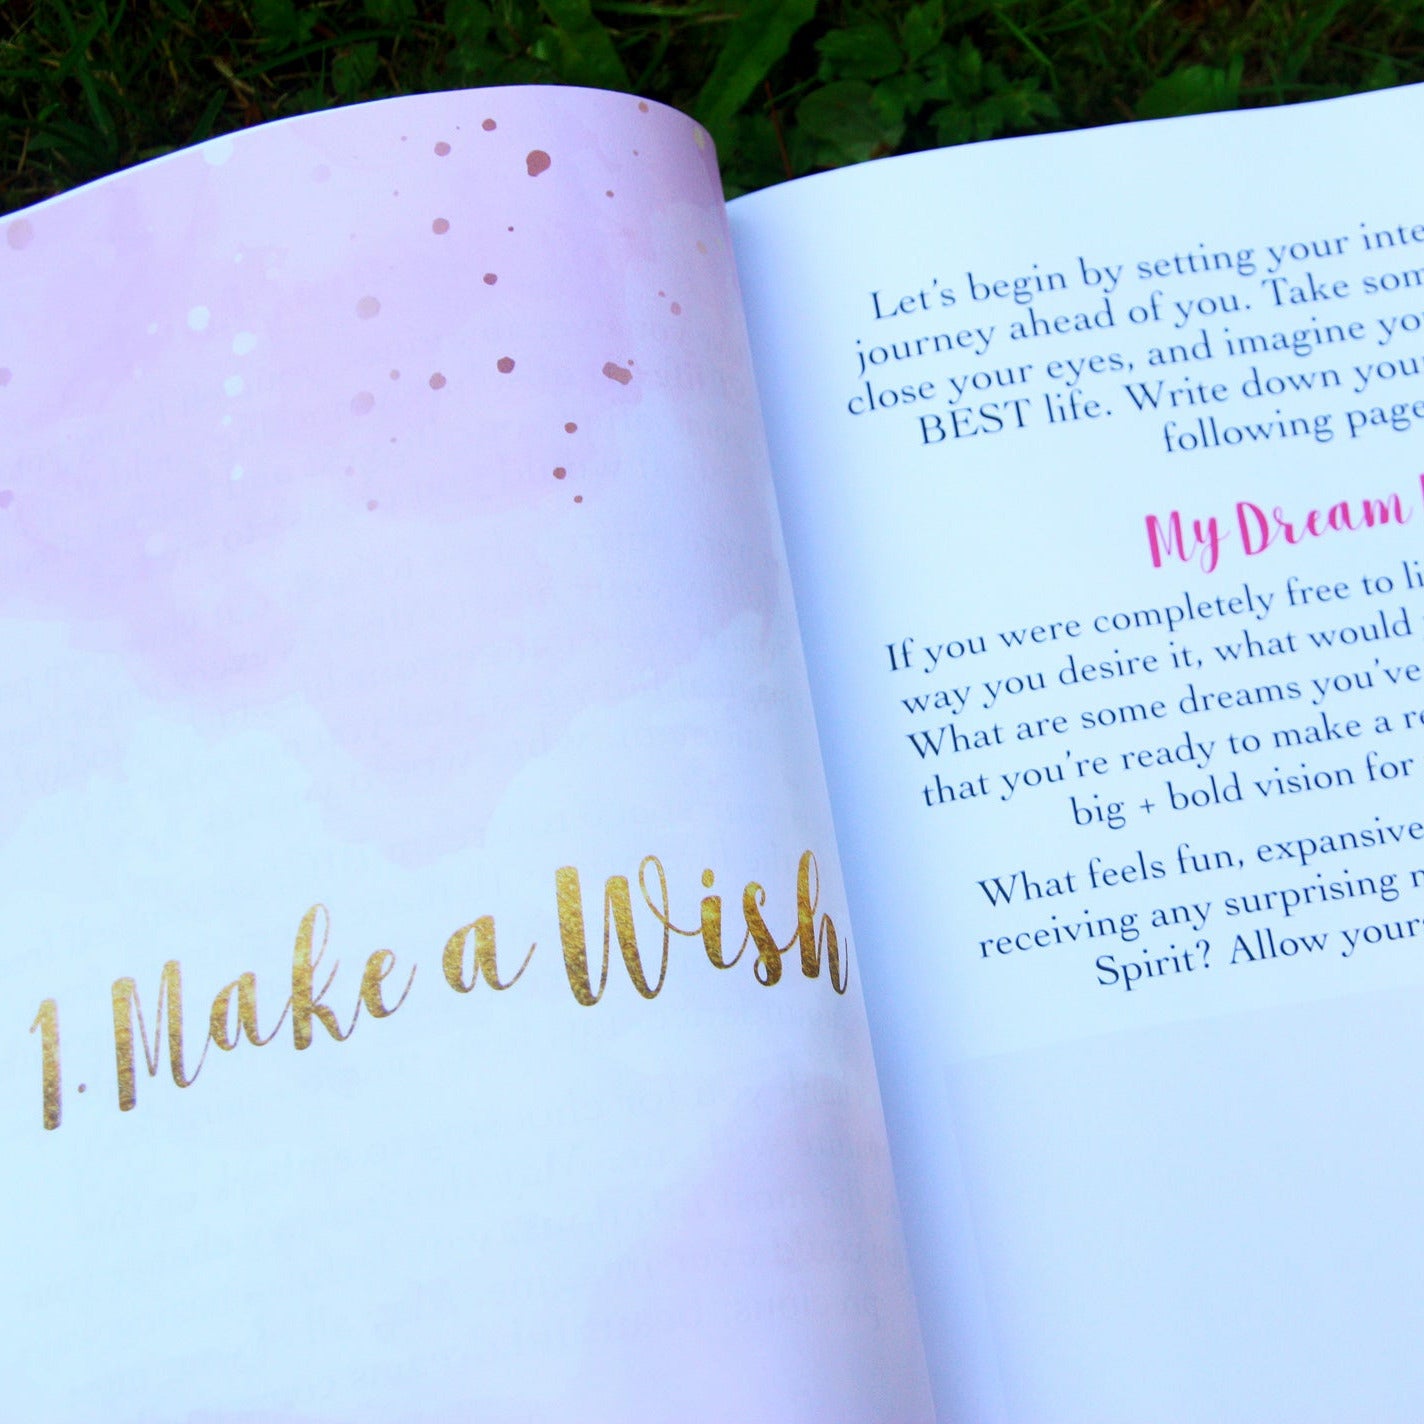 1. Make a Wish
Let's begin by setting your
journey ahead of you. Take
close your eyes, and imagine
BEST life. Write down
following
My Dream
If you were completely free to
way you desire it, what would
What are some dreams you've
that you're ready to make a
big + bold vision for
What feels fun, expansive
receiving any surprising
Spirit? Allow